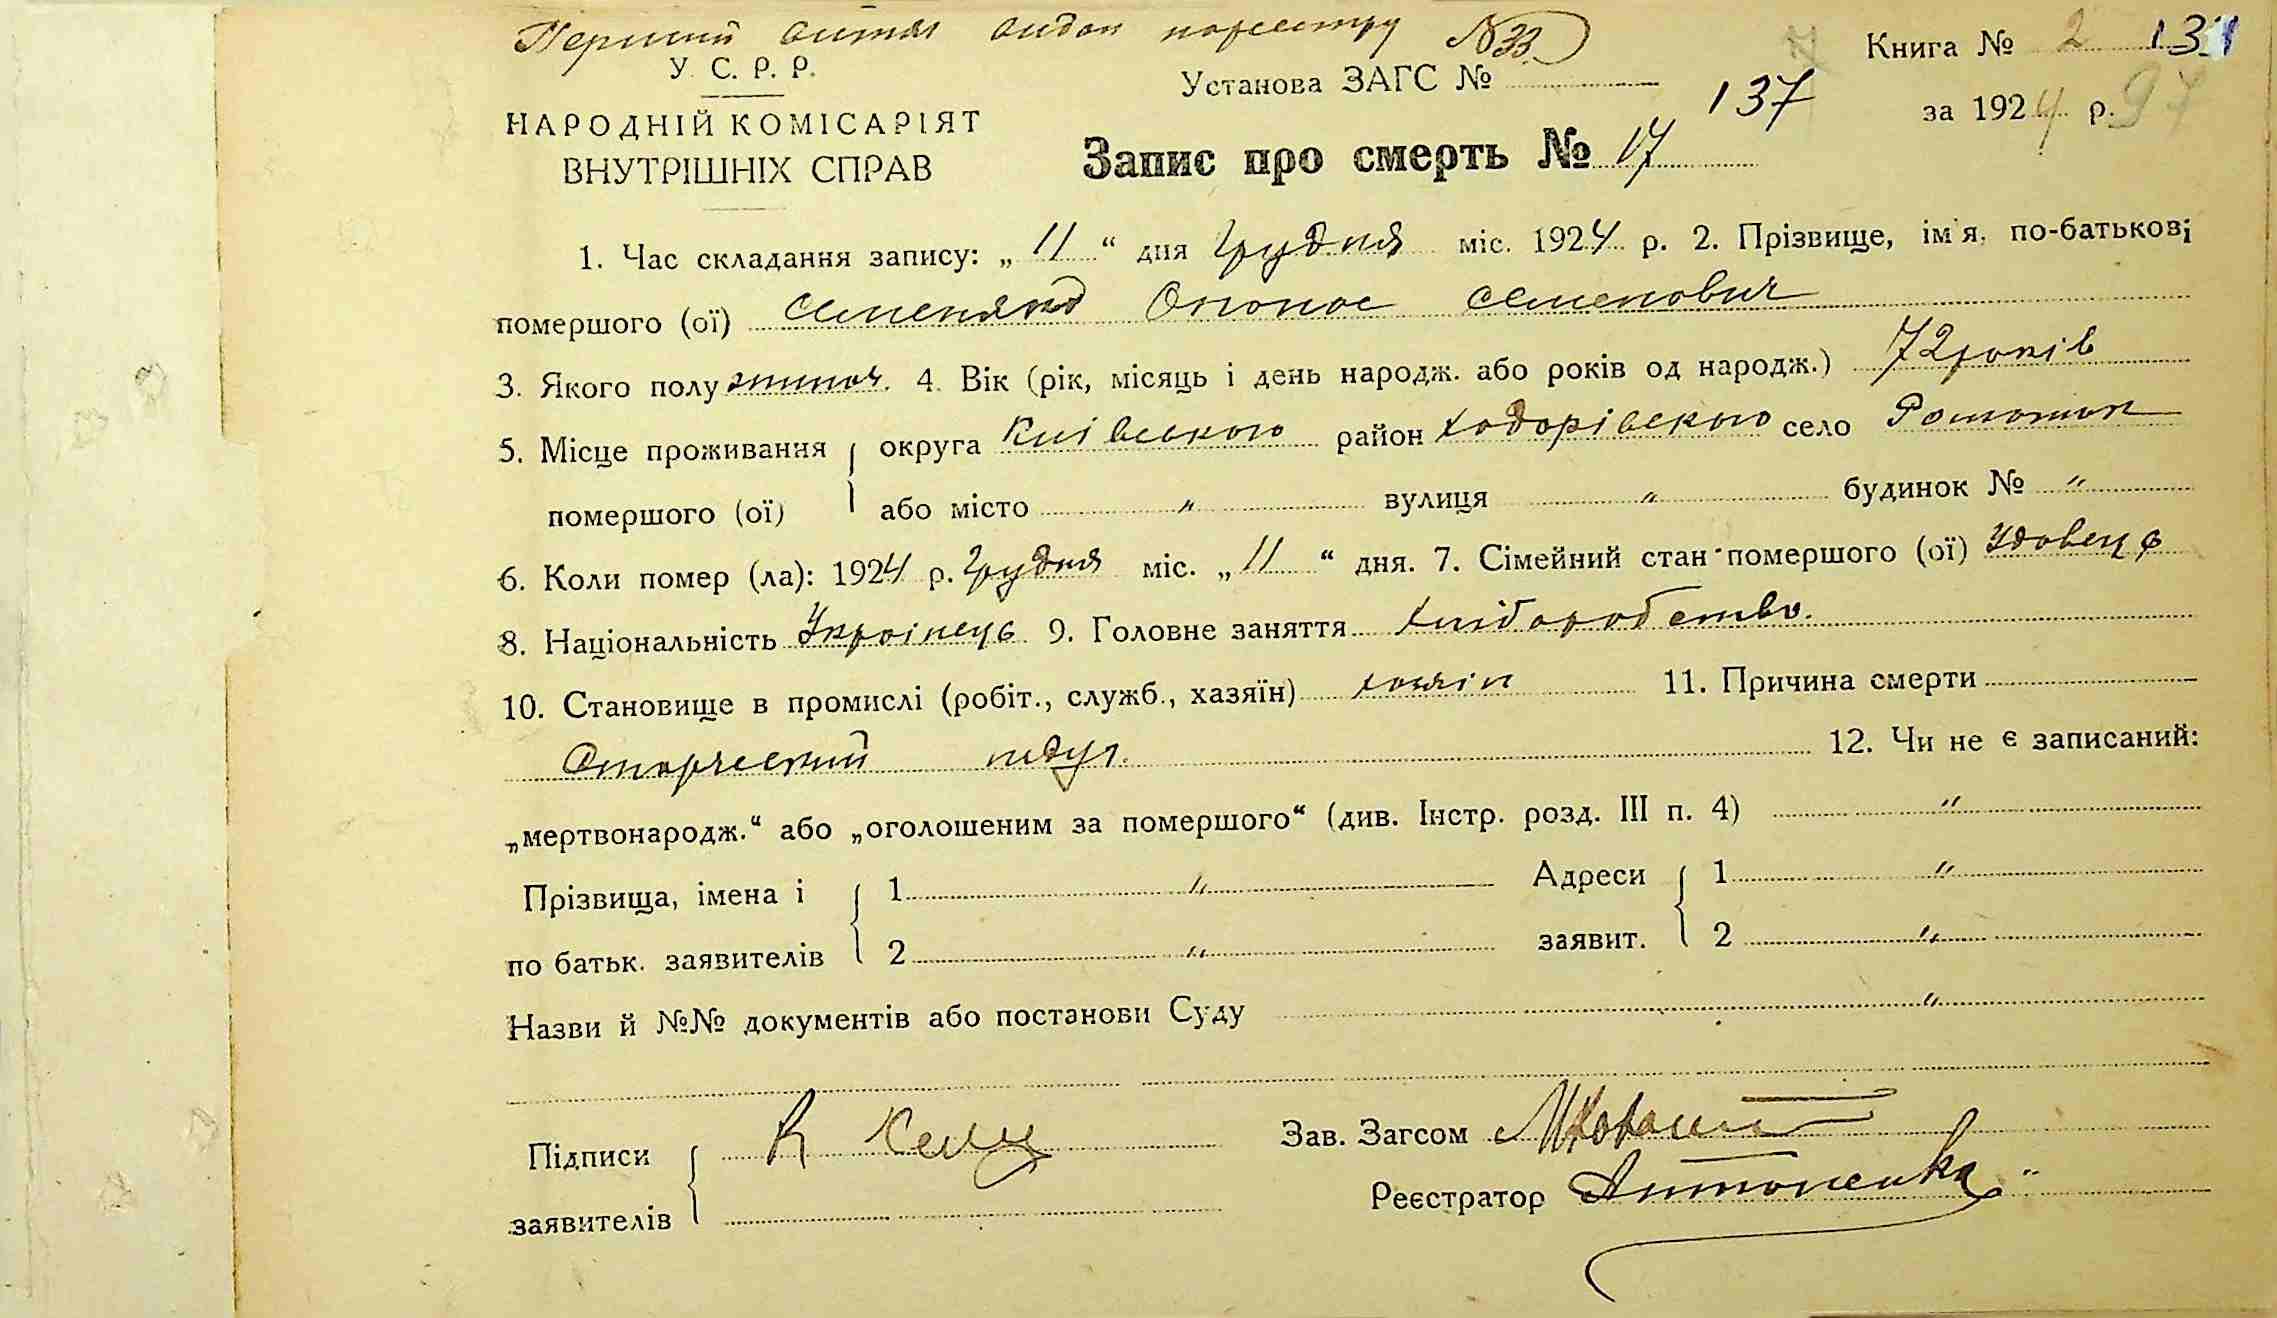 Перший витяг видан пореєстру №33
У. С. Р. Р.
НАРОДНІЙ КОМІСАРІЯТ
ВНУТРІШНІХ СПРАВ
Установа ЗАГС №
Книга № 2 131
137
за 1924 р. 97
Запис про смерть № 17
1. Час складання запису: „ 11 “ дня Грудня міс. 1924 р. 2. Прізвище, ім'я, по-батькові
помершого (ої) Опонос Семенович
3. Якого полу 4. Вік (рік, місяць і день народж. або років од народж.) 72 років
5. Місце проживання { округа Київського район Ходорівського село
помершого (ої) або місто „ вулиця „ будинок № „
6. Коли помер (ла): 1924 р. Грудня міс. „ 11 “ дня. 7. Сімейний стан помершого (ої) Удовець
8. Національність Україінець 9. Головне заняття Хліборобство.
10. Становище в промислі (робіт., служб., хазяїн) хозяін 11. Причина смерти
Старческий 12. Чи не є записаний:
„мертвонародж.“ або „оголошеним за помершого“ (див. Інстр. розд. III п. 4) „
Прізвища, імена і { 1 „ Адреси { 1 „
по батьк. заявителів 2 „ заявит. 2 „
Назви й №№ документів або постанови Суду „
Підписи { Зав. Загсом
заявителів Реєстратор Антоненко